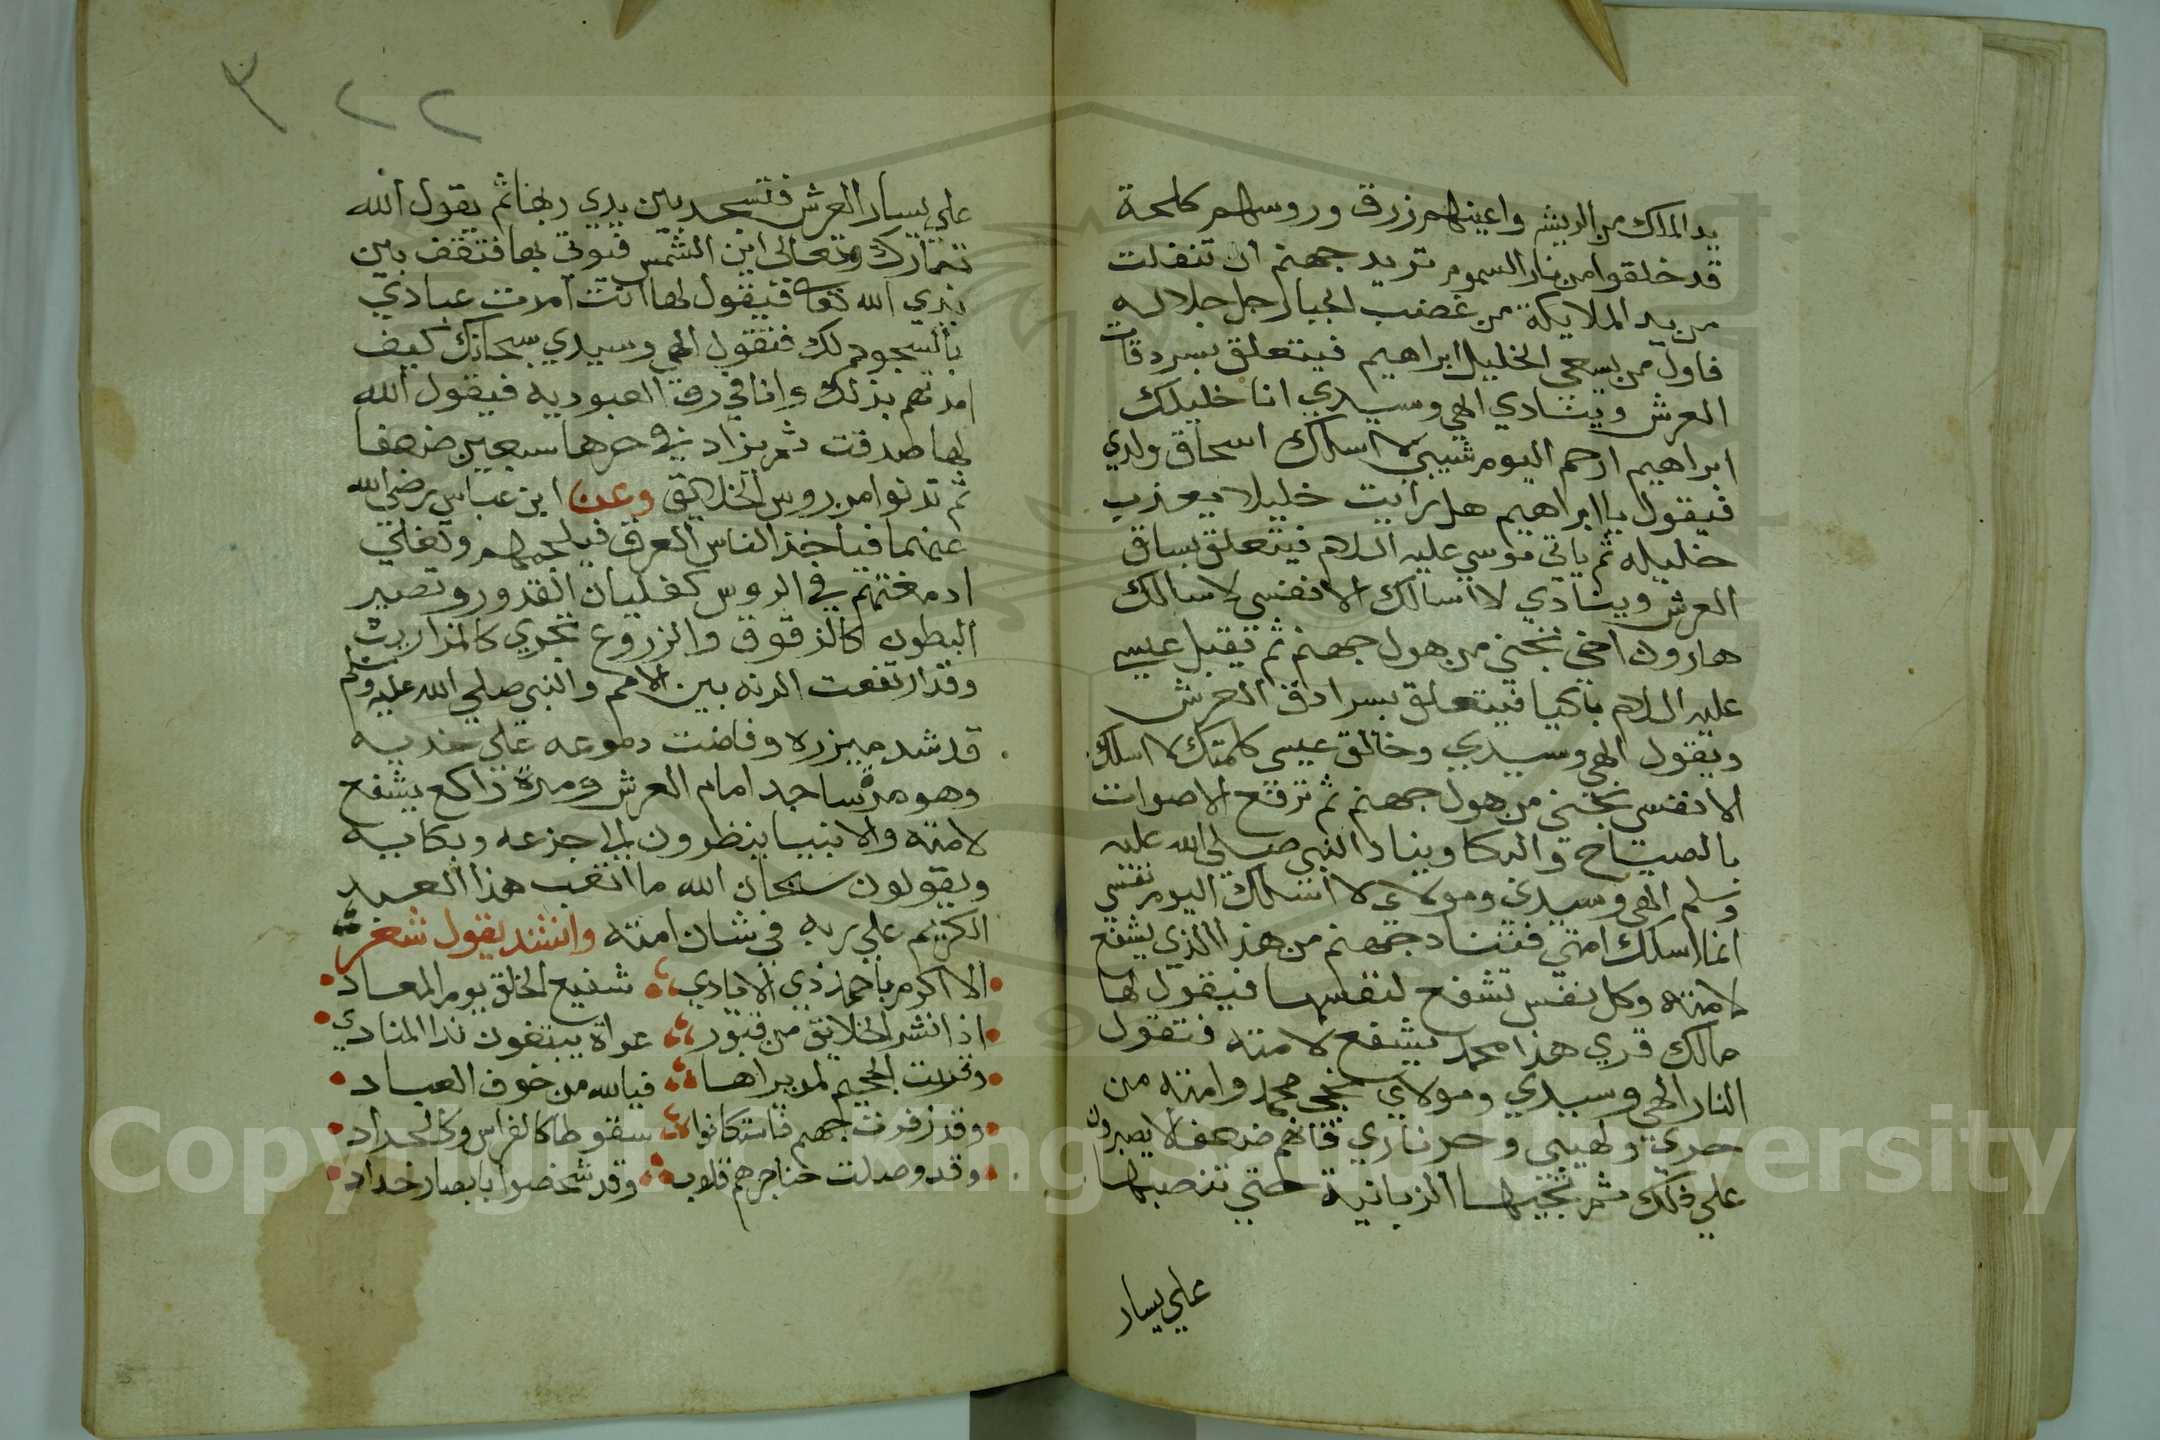 يد الملك من الريش واعينهم زرق وروسهم كلحة
قد خلقوا من نار السموم تريد جهنم ان تنفلت
من يد الملايكة من غضب الجبار جل جلاله
فاول من يسعي الخليل ابراهيم فيتعلق بسردقات
العرش وينادي الهي وسيدي انا خليلك
ابراهيم ارحم اليوم شيبتي لا اسلك اسحاق ولدي
فيقول يا ابراهيم هل رايت خليلا يعذب
خليله ثم ياتي موسي عليه السلام فيتعلق بساق
العرش وينادي لا اسالك الا نفسي لا سالك
هارون اخي نجني من هول جهنم ثم تقبل عيسي
عليه السلام باكيا فيتعلق بسرادق العرش
ويقول الهي وسيدي وخالق عيسي كلمتك لا اسلك
الا نفسي نجني من هول جهنم ثم ترتفع الاصوات
بالصياح والبكا ويناد النبي صلي الله عليه
وسلم الهي وسيدي ومولاي لا اسلك اليوم نفسي
انما اسلك امتي فتناد جهنم من هذا الذي يشفع
لامته وكل نفس تشفع لنفسها فيقول لها
مالك قري هذا محمد يشفع لامته فتقول
النار الهي وسيدي ومولاي نجي محمد وامته من
حري ولهيبي وحر ناري فانهم ضعفا لا يصبرون
علي ذلك ثم تجيها الزبانية حتي تنصبها
علي يسار
٣٢٢
علي يسار العرش فتسجد بين يدي ربها ثم يقول الله
تبارك وتعالي اين الشمس فيوتي بها فتقف بين
يدي الله تعا فيقول لها انت امرت عبادي
بالسجود لك فتقول الهي وسيدي سبحانك كيف
امرتهم بذلك وانا في رق العبودية فيقول الله
لها صدقت ثم يزاد في حرها سبعين ضعفا
ثم تدنوا من روس الخلايق وعن ابن عباس رضي الله
عنهما فياخذ الناس العرق فيلجمهم وتغلي
ادمغتهم في الروس كغليان القدور وتصير
البطون كالزقوق والزروع تجري كالمزاريب
وقد ارتفعت الرنه بين الامم والنبي صلي الله عليه وسلم
قد شد ميزره وفاضت دموعه علي خديه
وهو مرة ساجد امام العرش ومرة راكع يشفع
لامته والانبيا ينظرون الي جزعه وبكايه
ويقولون سبحان الله ما اتعب هذا العبد
الكريم علي ربه في شان امته وانشد يقول شعر
الا اكرم باحمد ذي الايادي شفيع الخلق يوم المعاد
اذا نشر الخلايق من قبور عراة يبتغون ندا المنادي
وقربت الجحيم لمن يراها فيالله من خوف العباد
وقد زفرت جهنم فاستكانوا سقوطا كالفراش وكالجراد
وقد وصلت حناجرهم قلوب وقد شخصوا بابصار حداد
Copyright © King Saud University